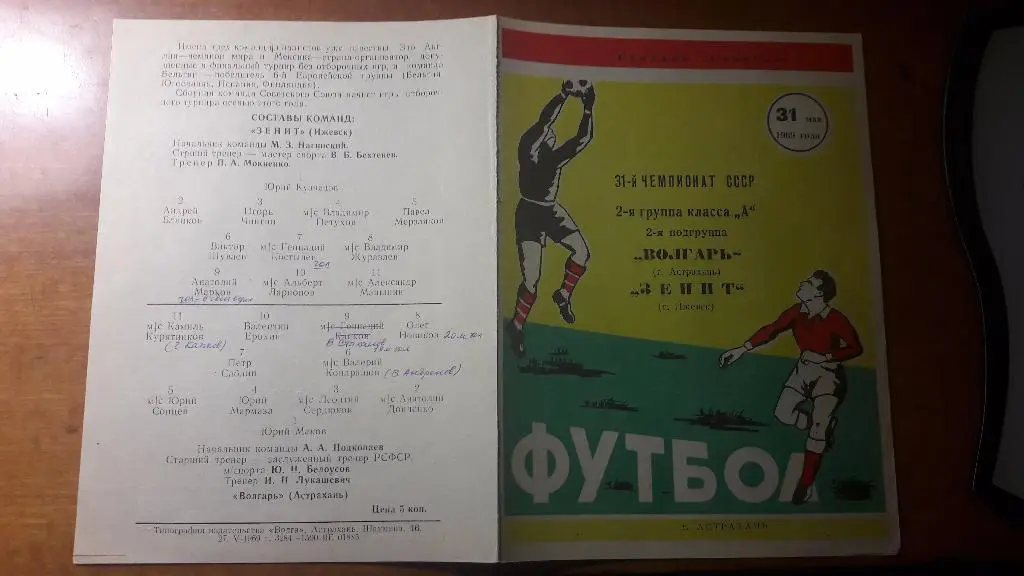 Имена трех команд-финалистов уже известны. Это Анг-
лия—чемпион мира и Мексика—страна-организатор, допу-
щенные в финальный турнир без отборочных игр, и команда
Бельгии — победитель 6-й Европейской группы (Бельгия
Югославия, Испания, Финляндия).
Сборная команда Советского Союза начнет игры отбороч-
ного турнира осенью этого года.
СОСТАВЫ КОМАНД:
«ЗЕНИТ» (Ижевск)
Начальник команды М. З.
Старший тренер — мастер спорта В. Б. Бехтенев.
Тренер В. А. Мокиенко.
1
Юрий
2 3 4 5
Андрей Игорь м|с Владимир Павел
Блинков Чингин Петухов Мерзляков
6 7 8
Виктор м|с Геннадий м|с Владимир
Шуваев Костылев Журавлев
гол
9 10 11
Анатолий м|с Альберт м|с Александр
Марков Ларионов
11 10 9 8
м|с Камиль Валентин м|с Геннадий Олег
Курятников Ерохин Новиков 20 м. гол
7 6
Петр м|с Валерий
Саблин Кондрашов (В Андронов)
5 4 3 2
м|с Юрий Юрий м|с Леонтий м|с Анатолий
Сонцев Мармаза Сердюков Донченко
1
Юрий Маков
Начальник команды А. А. Подколаев
Старший тренер — заслуженный тренер РСФСР,
м/спорта Ю. Н. Белоусов
Тренер И. П Лукашевич
«Волгарь» (Астрахань)
Цена 5 коп.
Типография издательства «Волга», Астрахань, Шаумяна, 46.
27. V-1969 г. 3284 —1500 ВЕ 01885
31 мая
1969 года
31-й ЧЕМПИОНАТ СССР
2-я группа класса „А“
2-я подгруппа
„ВОЛГАРЬ“-
(г. Астрахань)
„ЗЕНИТ“
(г. Ижевск)
ФУТБОЛ
г. АСТРАХАНЬ